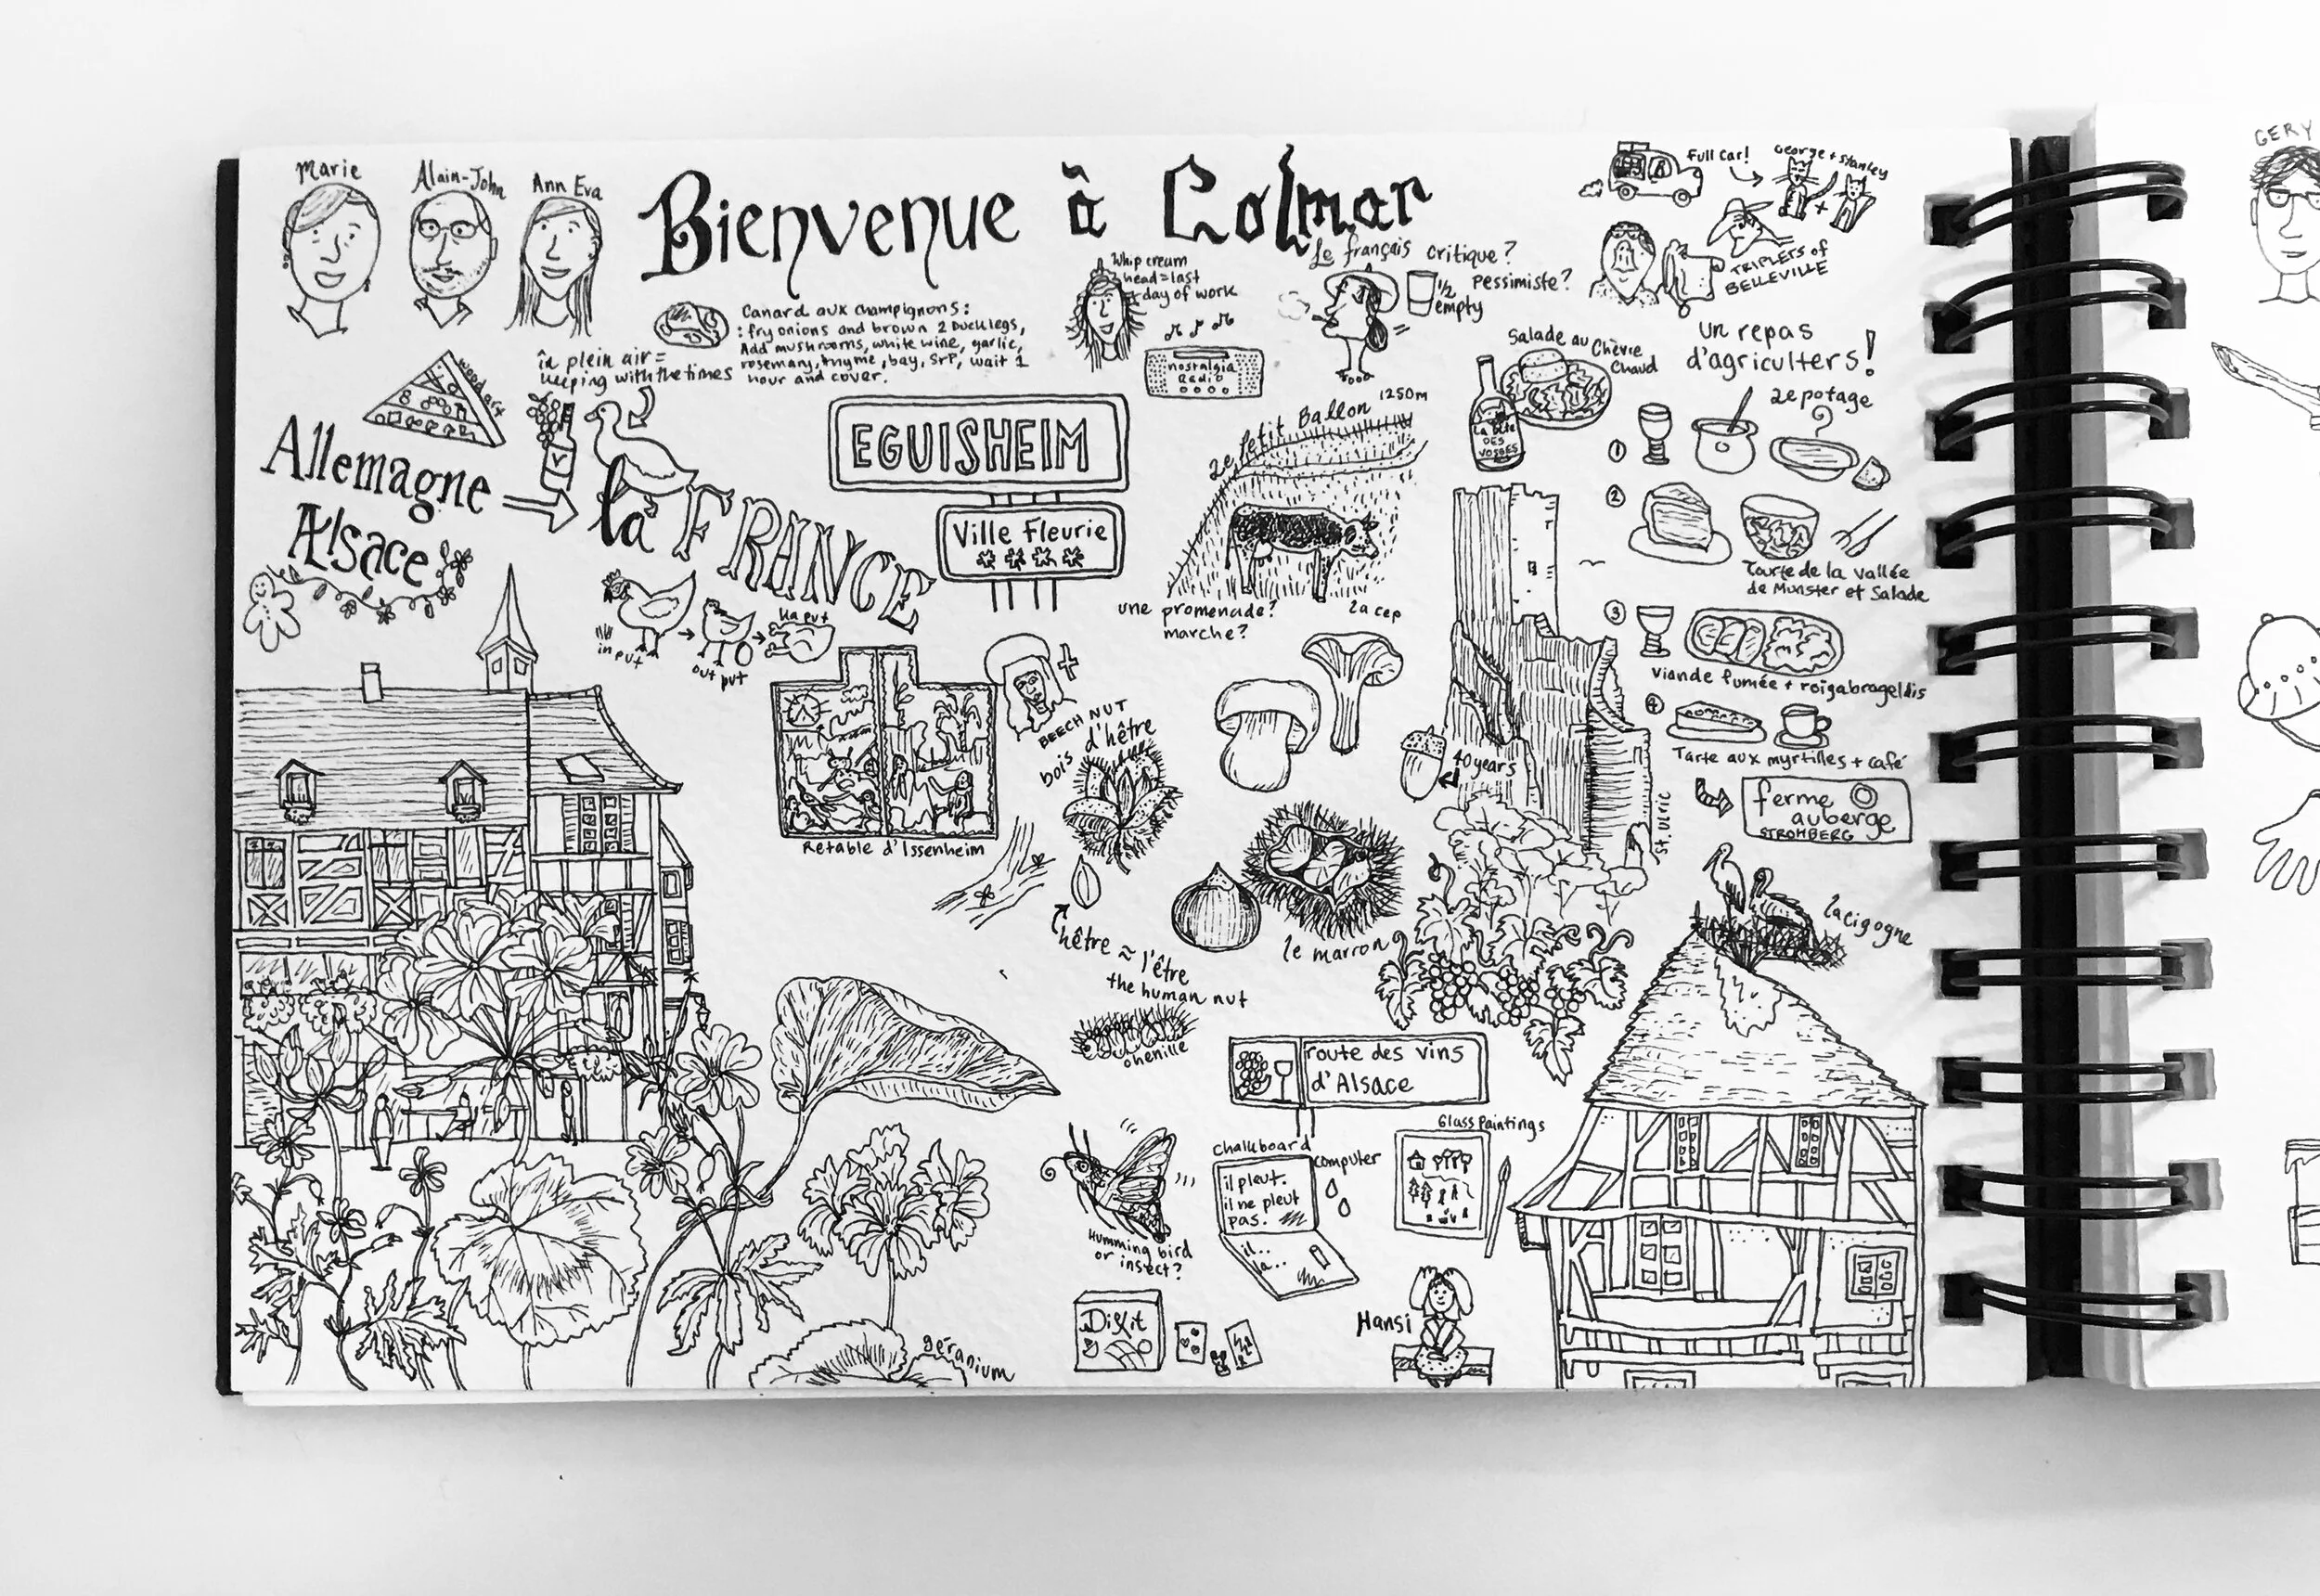 Marie
Alain-John
Ann Eva
Bienvenue à Colmar
Full car!
George + Stanley
TRIPLETS of
BELLEVILLE
GERY
Whip cream
head = last
day of work
Le français critique?
pessimiste?
1/2
empty
Canard aux champignons:
: fry onions and brown 2 Duck legs,
Add mushrooms, white wine, garlic,
rosemary, thyme, bay, S+P, wait 1
hour and cover.
in plein air =
keeping with the times
wood art
nostalgia
Radio
Salade au Chèvre
Chaud
un repas
d'agriculters!
Allemagne
Alsace
la FRANCE
EGUISHEIM
Ville Fleurie
Le Petit Ballon 1250m
LA BÊTE
DES
VOSGES
①
le potage
②
Tourte de la vallée
de Munster et Salade
in put
out put
Ka put
une promenade?
marche?
la cep
③
viande fumée + roigabrageldis
④
Tarte aux myrtilles + café
ferme
auberge
STROHBERG
Retable d'Issenheim
BEECH NUT
bois d'hêtre
40 years
St. Ulric
le marron
la cigogne
hêtre ≈ l'être
the human nut
chenille
route des vins
d'Alsace
Glass Paintings
chalkboard
computer
il pleut.
il ne pleut
pas.
il...
la...
Humming bird
or insect?
Dixit
Hansi
géranium